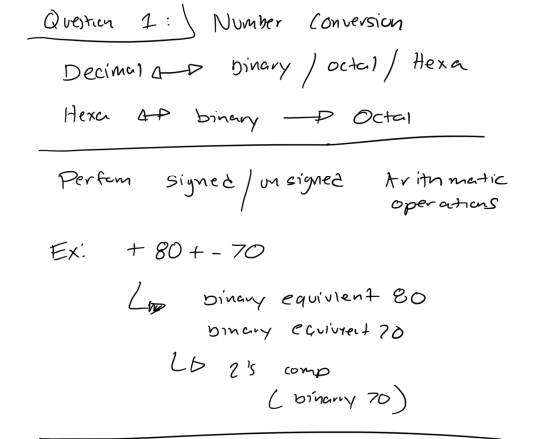 Question 1: Number Conversion
Decimal ↔ binary / octal / Hexa
Hexa ↔ binary → Octal
Perfom signed / unsigned Arithmatic
operations
Ex: + 80 + - 70
↳ binary equivlent 80
binary equivlent 70
↳ 2's comp
( binarry 70 )